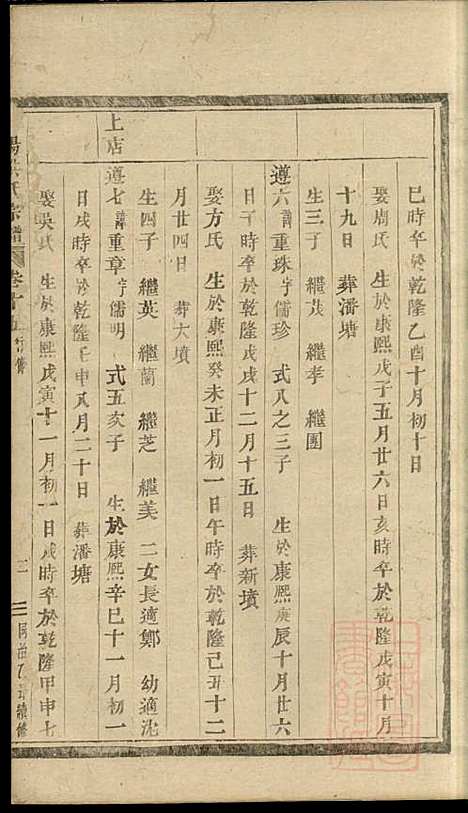 巳時卒於乾隆乙酉十月初十日
娶周氏 生於康熙戊子五月廿六日亥時卒於乾隆戊寅十月
十九日 葬潘塘
生三子 繼茂 繼孝 繼圑
遵六譜重珠字儒珍 式八之三子 生於康熙庚辰十月廿六
日子時卒於乾隆戊戌十二月十五日 葬新墳
娶方氏 生於康熙癸未正月初一日午時卒於乾隆己丑十二
月廿四日 葬大墳
生四子 繼英 繼蘭 繼芝 繼美 二女長適鄭 幼適沈
上店
遵七譜重章字儒明 式五亥子 生於康熙辛巳十一月初一
日戌時卒於乾隆壬申八月二十日 葬潘塘
娶吳氏 生於康熙戊寅十一月初一日戌時卒於乾隆甲申七
氏宗譜 卷十五 二 同治乙丑續修